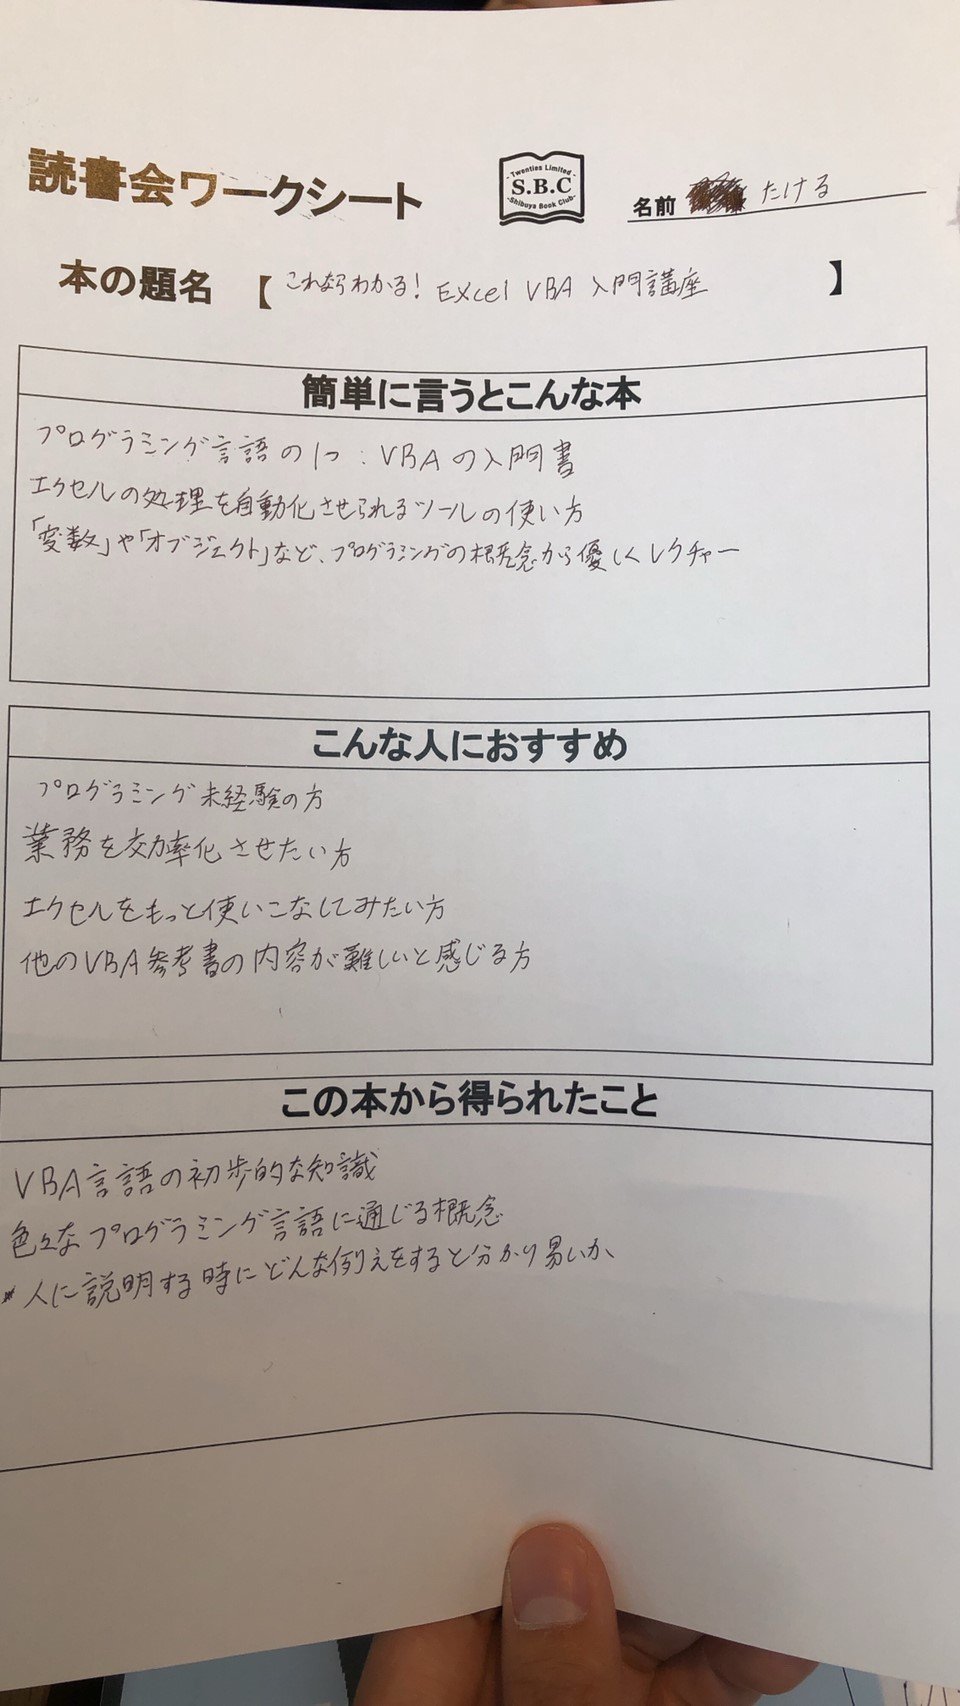 読書会ワークシート
Twenties Limited
S.B.C
Shibuya Book Club
名前 たける
本の題名 【これならわかる! Excel VBA 入門講座】
簡単に言うとこんな本
プログラミング言語の1つ:VBAの入門書
エクセルの処理を自動化させられるツールの使い方
「変数」や「オブジェクト」など、プログラミングの概念から優しくレクチャー
こんな人におすすめ
プログラミング未経験の方
業務を効率化させたい方
エクセルをもっと使いこなしてみたい方
他のVBA参考書の内容が難しいと感じる方
この本から得られたこと
VBA言語の初歩的な知識
色々なプログラミング言語に通じる概念
*人に説明する時にどんな例えをすると分かり易いか、